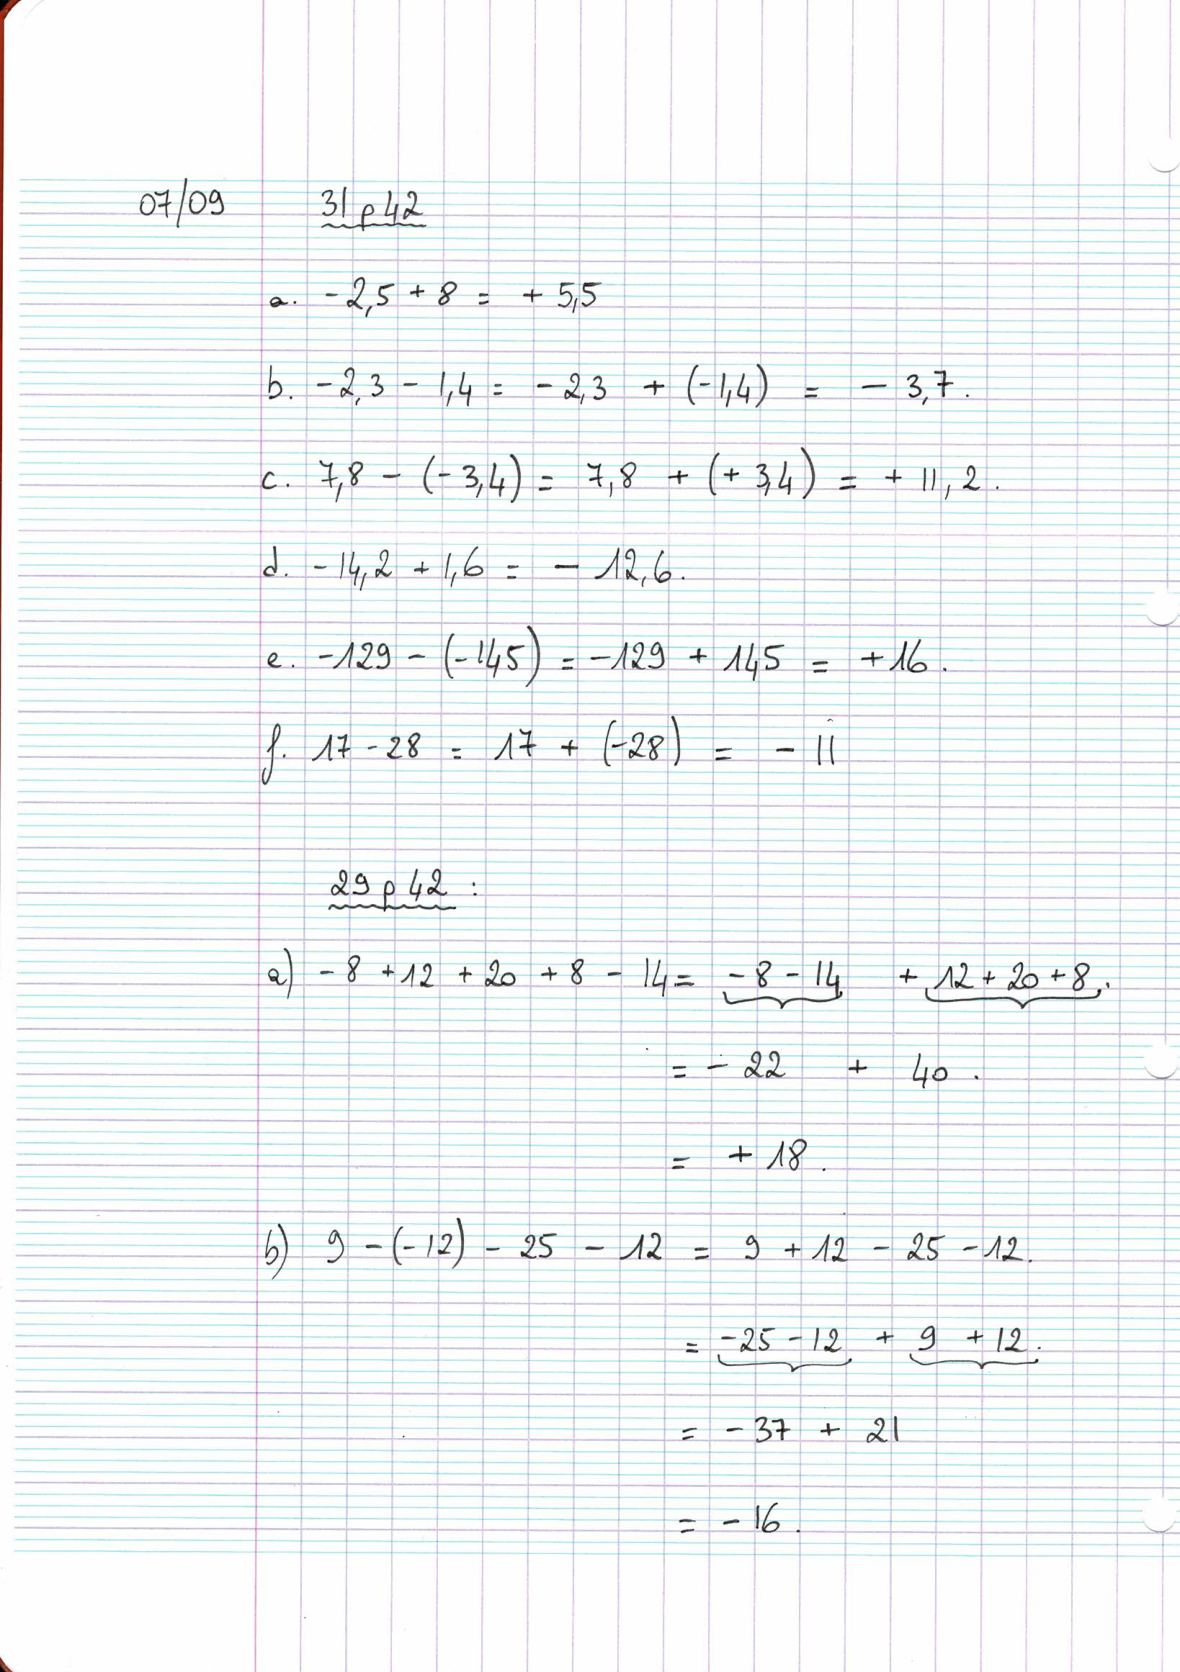 07/09 31 p 42
a. -2,5 + 8 = + 5,5
b. -2,3 - 1,4 = -2,3 + (-1,4) = - 3,7.
c. 7,8 - (-3,4) = 7,8 + (+3,4) = + 11,2.
d. -14,2 + 1,6 = - 12,6.
e. -129 - (-145) = -129 + 145 = +16.
f. 17 - 28 = 17 + (-28) = - 11
29 p 42 :
a) -8 +12 +20 +8 - 14 = -8 - 14 + 12 + 20 + 8.
= - 22 + 40.
= + 18.
b) 9 - (-12) - 25 - 12 = 9 + 12 - 25 - 12.
= -25 - 12 + 9 + 12.
= - 37 + 21
= - 16.